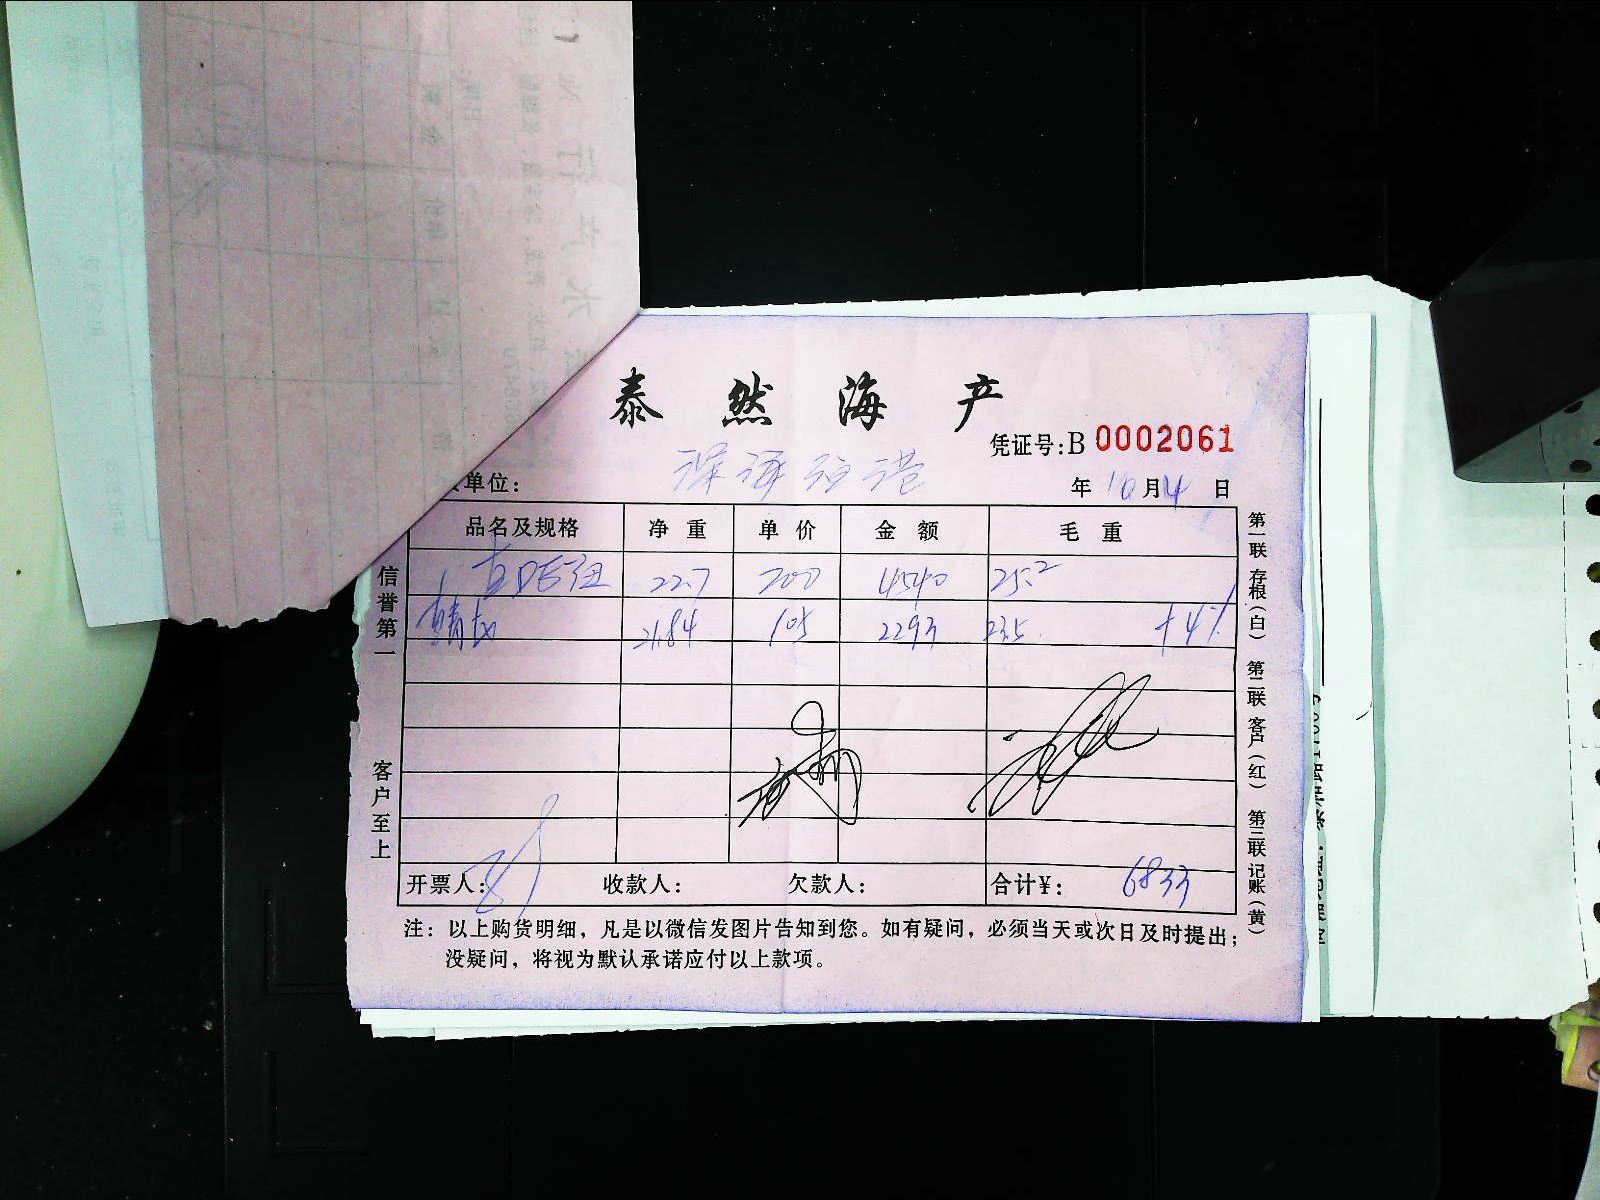 泰然海产
凭证号:B 0002061
单位: 深海渔港
年 10 月 4 日
品名及规格 净重 单价 金额 毛重
22.7 200 4540 25.2
21.84 105 2293 23.5 +4%
开票人: 收款人: 欠款人: 合计¥: 6833
注：以上购货明细，凡是以微信发图片告知到您。如有疑问，必须当天或次日及时提出；
没疑问，将视为默认承诺应付以上款项。
信誉第一
客户至上
第一联 存根（白）
第二联 客户（红）
第三联 记账（黄）